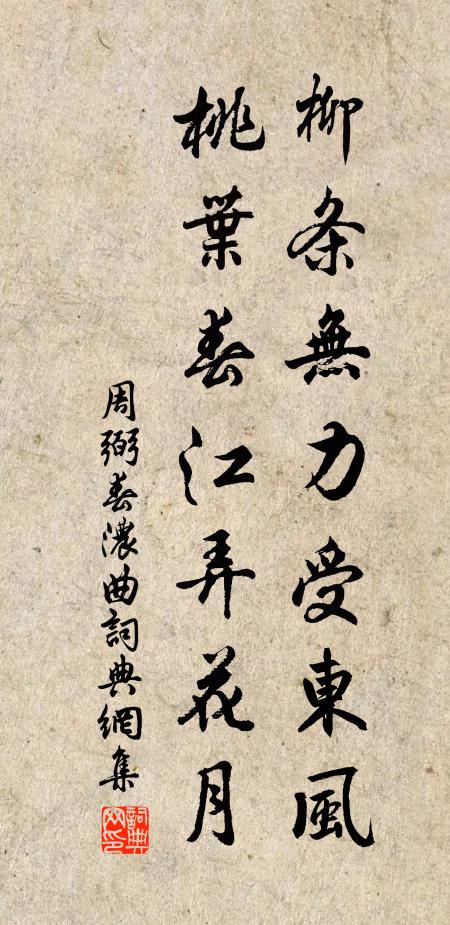 柳条無力受東風
桃葉春江弄花月
周弼春濃曲詞典網集
詞典网印